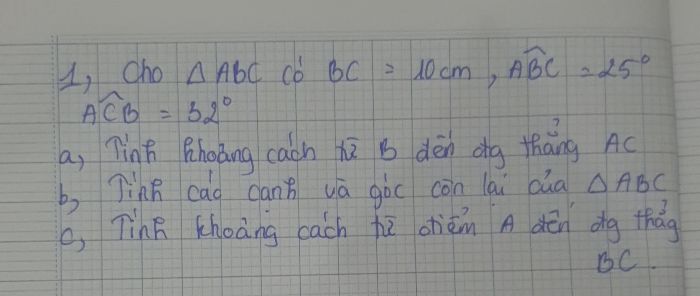 1, Cho Δ ABC có BC = 10cm, ABC = 25°
ACB = 32°
a, Tính khoảng cách từ B đến đg thẳng AC
b, Tính các cạnh và góc còn lại của Δ ABC
c, Tính khoảng cách từ điểm A đến đg thẳg
BC.